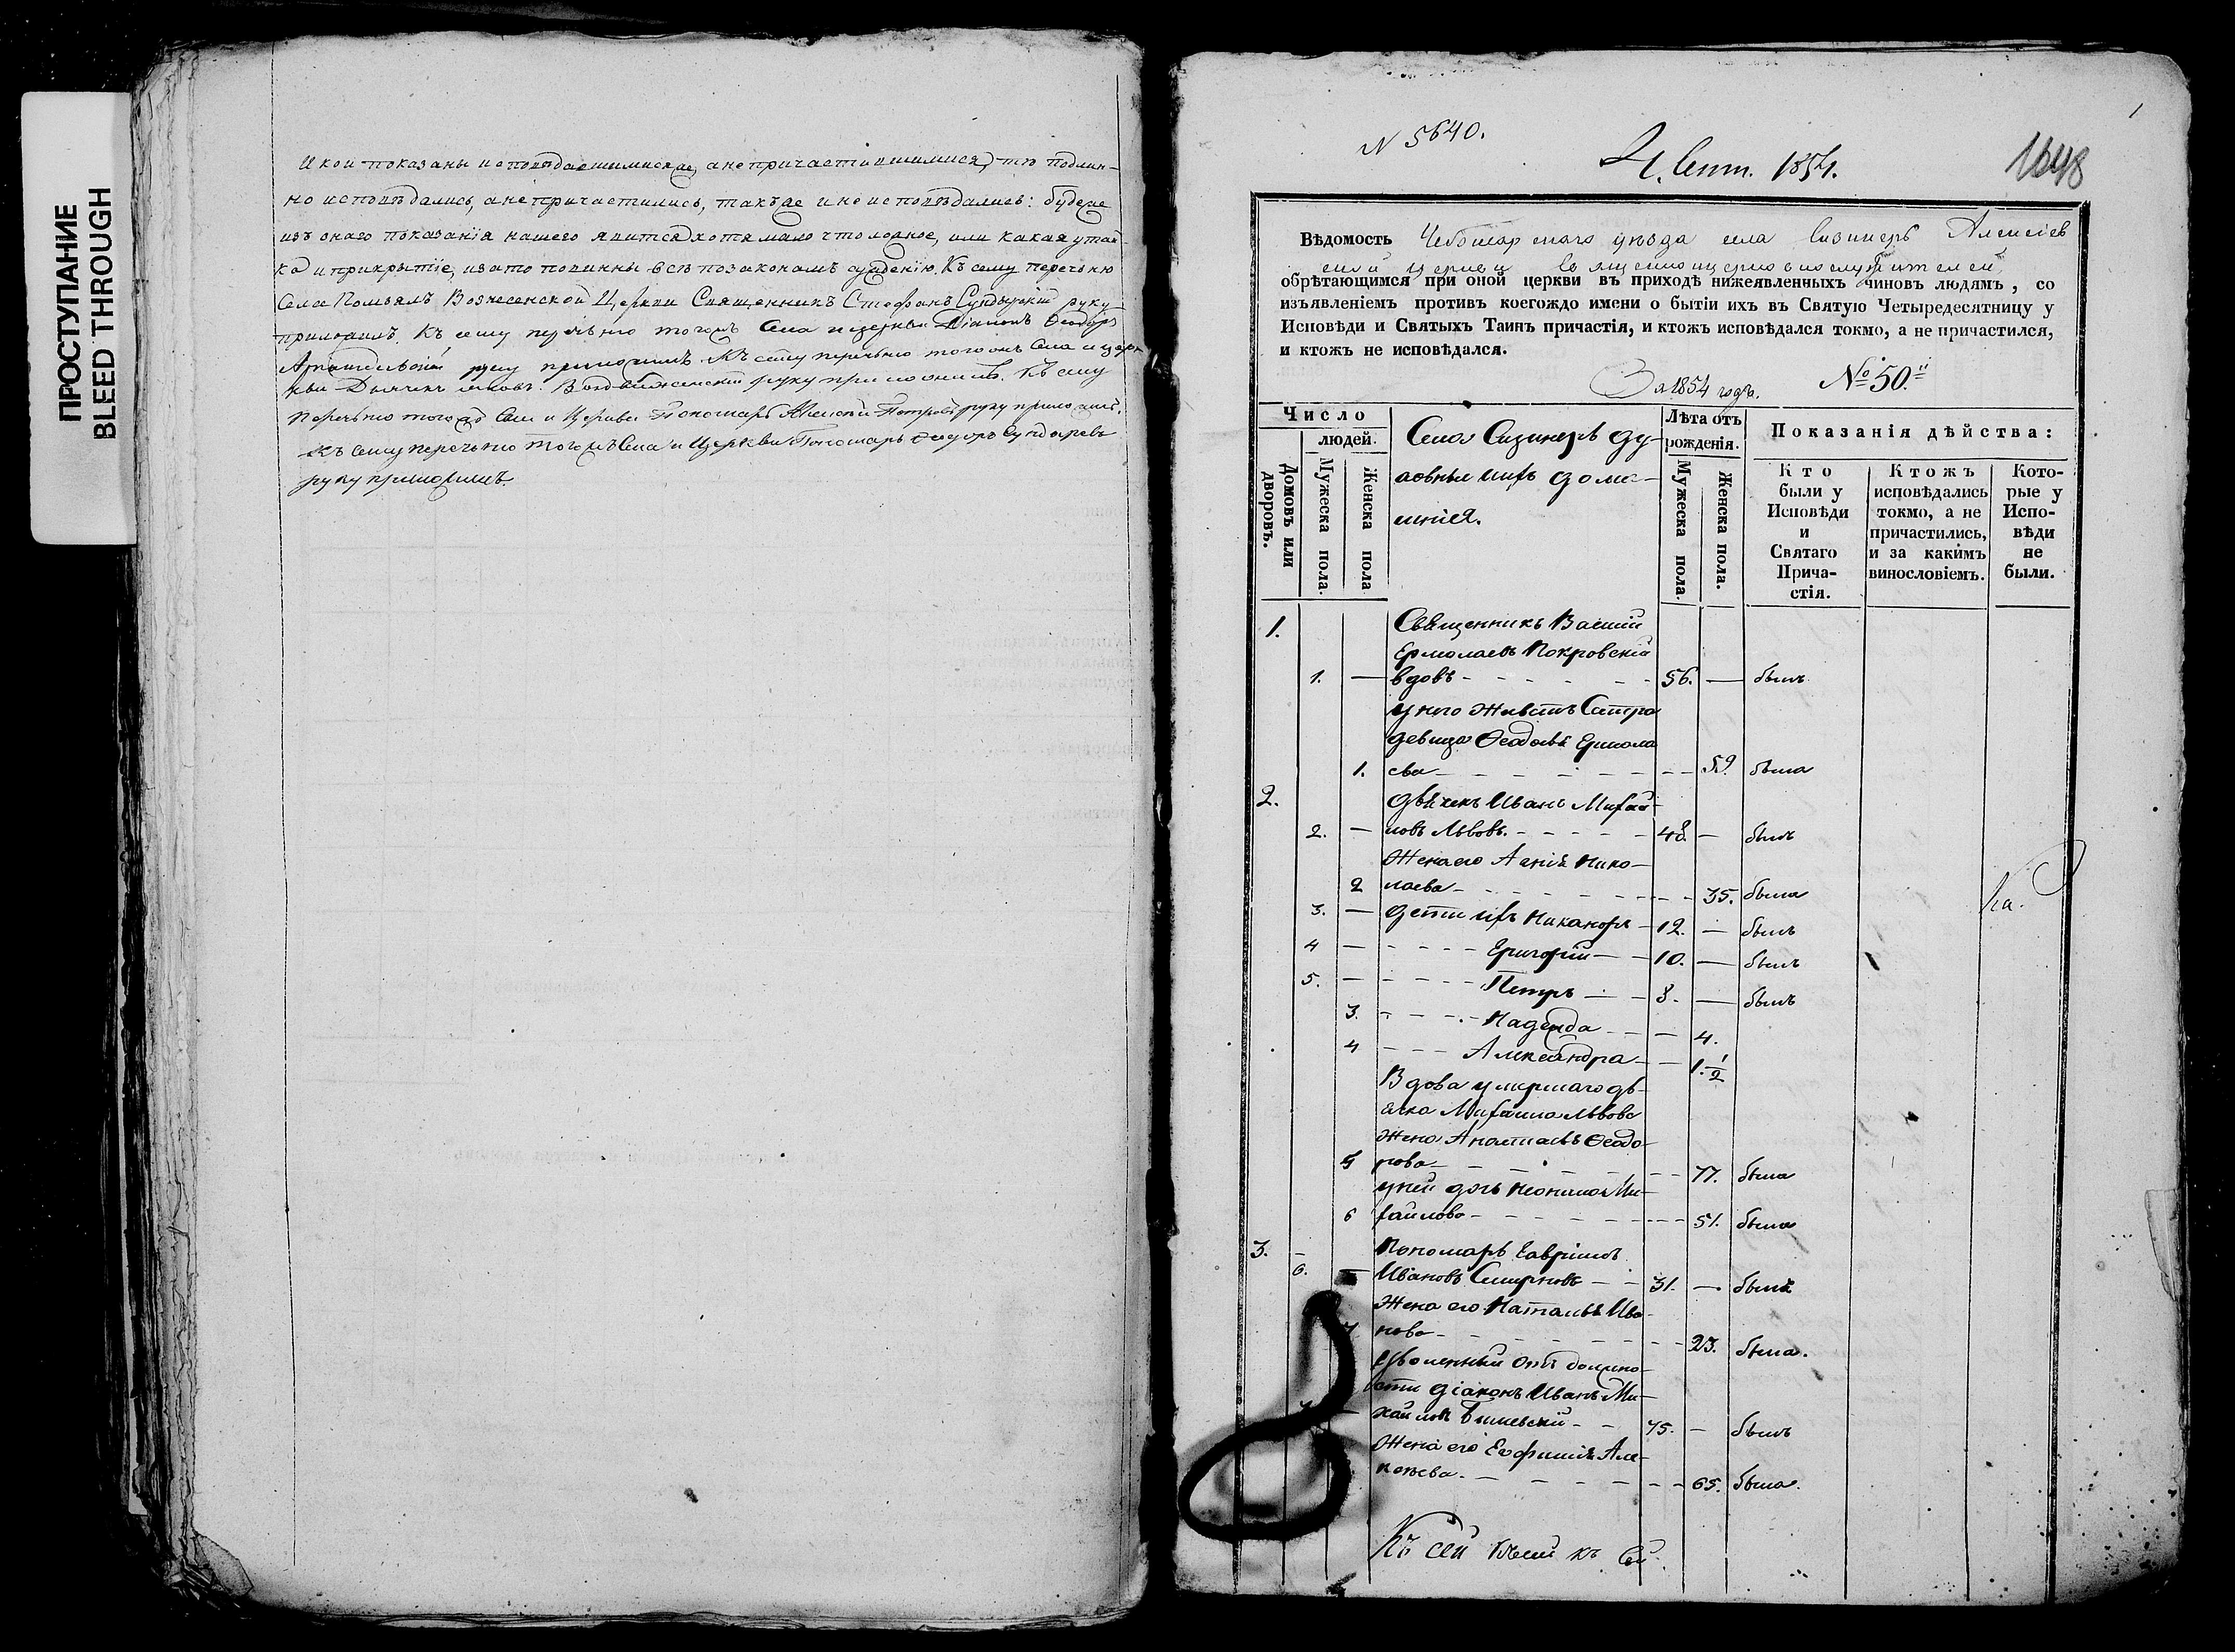 ПРОСТУПАНИЕ
BLEED THROUGH
И кои показаны исповѣдавшимися, а не причастившимися, тѣ подлин-
но исповѣдались, а не причастились, такъже и не исповѣдались: буде же
изъ онаго показанія нашего явится хотя мало что ложное, или какая утай-
ка и прикрытіе, и за то повинны всѣ по законамъ сужденію. Къ сему перечню
Села Помьялъ Вознесенской Церкви Священникъ Стефанъ Сундырскій руку
приложилъ. Къ сему перечню тогожъ Села и церкви Діаконъ Ѳеодоръ
руку приложилъ. Къ сему перечню тогожъ Села и церк-
ви Дьячекъ Воздвиженскій руку приложилъ. Къ сему
перечню тогожъ Села и Церкви Пономарь Алексѣй Петровъ руку приложилъ.
Къ сему перечню тогожъ Села и Церкви Пономарь Ѳедоръ Сундыревъ
руку приложилъ.
N 5640.
Сент. 1854.
1648
1
Вѣдомость Чебоксарскаго уѣзда села Сизинеръ Алексіев
ской церкви священноцерковнослужителей,
обрѣтающимся при оной церкви въ приходѣ нижеявленныхъ чиновъ людямъ, со
изъявленіемъ противъ коегождо имени о бытіи ихъ въ Святую Четыредесятницу у
Исповѣди и Святыхъ Таинъ причастія, и ктожъ исповѣдался токмо, а не причастился,
и ктожъ не исповѣдался.
За 1854 годъ. № 50.й
Число
людей.
Домовъ или дворовъ.
Мужеска пола.
Женска пола
Села Сизинеръ ду-
ховные ихъ дома-
шніе.
Лѣта отъ
рожденія.
Мужеска пола.
Женска пола.
Показанія дѣйства:
Кто были у Исповѣди и Святаго Прича- стія.
Ктожъ исповѣдались токмо, а не причастились, и за какимъ винословіемъ.
Кото- рые у Испо- вѣди не были.
1. Священникъ Василій
Ермолаевъ Покровскій
1. — вдовъ - - - - - 56. — былъ
у него живетъ Сестра
девица Ѳеодосья Ермола
1. ева - - - - - - 59. была
2. Дьячекъ Иванъ Михай-
2. — ловъ Львовъ. - - - - 48. — былъ
Жена его Ксенія Нико-
2 лаева - - - - - - 35. была
3. — дети ихъ Никаноръ - 12. — былъ
4 — - - - - Григорій - - 10. — былъ
5. — - - - - Петръ - - 8. — былъ
3. - - - - Надежда - - - 4.
4 - - - Александра - - 1.½
Вдова умершаго дь-
ячка Михаила Львова
жена Анастасья Ѳеодо-
5 рова - - - - - - 77. была
у ней дочь Неонила Ми-
6 хайлова - - - - - - 51. была
3. Пономарь Гавріилъ
6. — Ивановъ Смирновъ - - 31. — былъ
Жена его Наталья Ива-
7. нова - - - - - - 23. была.
Уволенный отъ должно-
сти діаконъ Иванъ Ми-
7. — хайловъ - - 75. — былъ
Жена его Евфимія Але-
ксѣева - - - - - - 65. была.
Къ сей